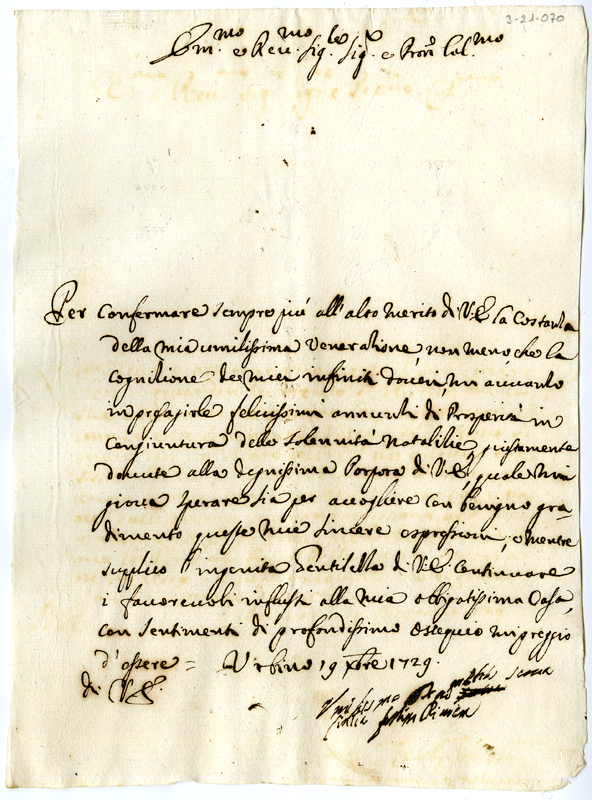 3-21-070
Em.mo e Rev.mo Sig.re Sig.r e Pron Col.mo
Per confermare sempre piú all'alto merito di V.E. la Costanza
della mia umilissima Veneratione, non meno, che la
cognitione de miei infiniti doveri, mi avvanzo
in presagirle felicissimi annunti di Prosperità in
congiuntura delle Solennità Natalitie, giustamente
dovute alla degnissima Porpora di V.E., quale mi
giova sperare sia per accogliere con benigno gra-
dimento queste mie sincere espressioni; e mentre
supplico l'ingenita Gentilezza di V.E. continuare
i favorevoli influssi alla mia obligatissima Casa,
con sentimenti di profondissimo ossequio mi preggio
d'essere = Urbino 19 Xbre 1729.
di V.E.